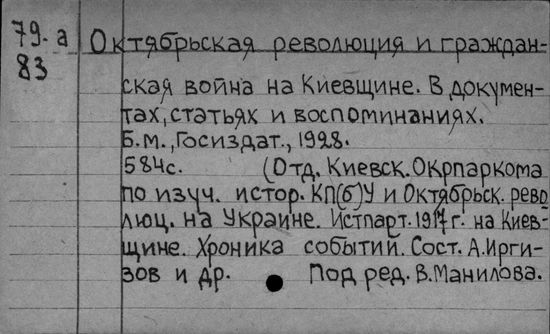 79-а Октябрьская революция и граждан-
83
ская война на Киевщине. В докумен-
тах, статьях и воспоминаниях.
Б.м., Госиздат., 1928.
584с. (Отд. Киевск. Окрпаркома
по изуч. истор. КП(б)У и Октябрьск. рево
люц. на Украине. Истпарт. 1917г. на Киев-
щине. Хроника событий. Сост. А.Ирги-
зов и др. Под ред. В.Манилова.